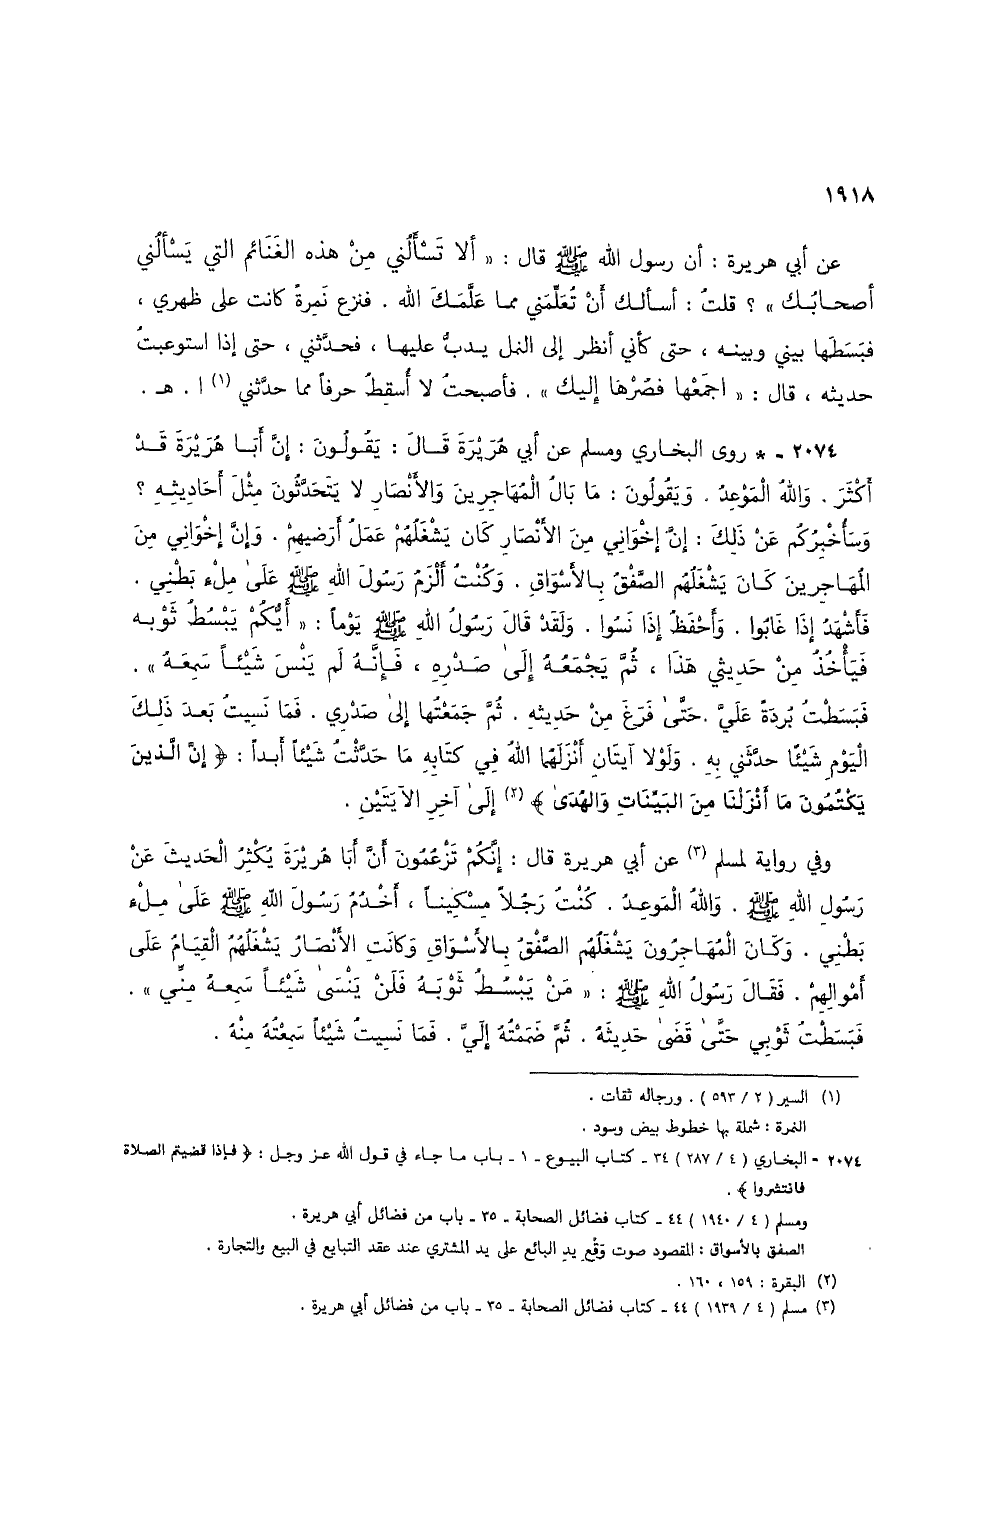 ١٩١٨
عن أبي هريرة : أن رسول الله ﷺ قال : « ألا تَسْأَلُني مِنْ هذه الغَنَائم التي يَسْأَلُني
أصحابُك » ؟ قلتُ : أسألك أنْ تُعلِّمَني مما عَلَّمَكَ الله . فنزع نَمِرةً كانت على ظهري ،
فبَسَطَها بيني وبينه ، حتى كأني أنظر إلى النمل يدبُّ عليها ، فحدَّثني ، حتى إذا استوعبتُ
حديثه ، قال : « اجمَعْها فصُرْهَا إليك » . فأصبحتُ لا أُسقِطُ حرفاً مما حدَّثني (١) ا . هـ .
٢٠٧٤ - * روى البخاري ومسلم عن أبي هُرَيْرَةَ قَالَ : يَقُولُونَ : إنَّ أَبَا هُرَيْرَةَ قَدْ
أكْثَرَ . وَاللهُ الْمَوْعِدُ . وَيَقُولُونَ : مَا بَالُ الْمُهَاجِرِينَ وَالأَنْصَارِ لا يَتَحَدَّثُونَ مِثْلَ أَحَادِيثِهِ ؟
وَسَأُخْبِرُكُم عَنْ ذَلِكَ : إنَّ إخْوَاني مِنَ الأَنْصَارِ كَان يَشْغَلُهُمْ عَمَلُ أَرَضِيهِمْ . وَإنَّ إخْوَانِي مِنَ
المُهَاجِرِينَ كَانَ يَشْغَلُهُم الصَّفْقُ بِالأَسْوَاقِ . وَكُنْتُ أَلْزَمُ رَسُولَ اللهِ ﷺ عَلَىٰ مِلْءِ بَطْنِي .
فَأَشْهَدُ إذَا غَابُوا . وَأَحْفَظُ إذَا نَسُوا . وَلَقَدْ قَالَ رَسُولُ اللهِ ﷺ يَوْماً : « أَيُّكُمْ يَبْسُطُ ثَوْبَه
فَيَأْخُذُ مِنْ حَدِيثي هَذَا ، ثُمَّ يَجْمَعُهُ إلَىٰ صَدْرِهِ ، فَإنَّهُ لَم يَنْسَ شَيْئاً سَمِعَهُ » .
فَبَسَطْتُ بُردَةً عَلَيَّ .حَتَّىٰ فَرَغَ مِنْ حَدِيثِهِ . ثُمَّ جَمَعْتُها إلىٰ صَدْرِي . فَمَا نَسِيتُ بَعدَ ذَلِكَ
الْيَوْمِ شَيْئًا حدَّثَني بِهِ . وَلَوْلا آيتَانِ أَنْزَلَهُمَا اللهُ فِي كتَابِهِ مَا حَدَّثْتُ شَيْئاً أَبداً : ﴿ إنَّ الَّذينَ
يَكْتُمُونَ مَا أَنْزَلْنَا مِنَ البَيِّنَاتِ وَالهُدَىٰ ﴾ (٢) إلَىٰ آخرِ الآيَتَيْنِ .
وفي رواية لمسلم (٣) عن أبي هريرة قال : إنَّكُمْ تَزْعُمُونَ أَنَّ أَبَا هُرَيْرَةَ يُكْثِرُ الْحَدِيثَ عَنْ
رَسُولِ اللهِ ﷺ . وَاللهُ الْمَوعِدُ . كُنْتُ رَجُلاً مِسْكِيناً ، أَخْدُمُ رَسُولَ اللهِ ﷺ عَلَىٰ مِلْءِ
بَطْنِي . وَكَانَ الْمُهَاجِرُونَ يَشْغَلُهُم الصَّفْقُ بِالأَسْوَاقِ وَكَانَتِ الأَنْصَارُ يَشْغَلُهُمُ الْقِيَامُ عَلَى
أمْوالِهِمْ . فَقَالَ رَسُولُ اللهِ ﷺ : « مَنْ يَبْسُطُ ثَوْبَهُ فَلَنْ يَنْسَىٰ شَيْئاً سَمِعهُ مِنِّي » .
فَبَسَطْتُ ثَوْبِي حَتَّىٰ قَضَىٰ حَدِيثَهُ . ثُمَّ ضَمَمْتُهُ إلَيَّ . فَمَا نَسِيتُ شَيْئاً سَمِعْتُهُ مِنْهُ .
(١) السير ( ٢ / ٥٩٣ ) . ورجاله ثقات .
النمرة : شملة بها خطوط بيض وسود .
٢٠٧٤ - البخاري ( ٤ / ٢٨٧ ) ٣٤ - كتاب البيوع - ١ - باب ما جاء في قول الله عز وجل : ﴿ فإذا قضيتم الصلاة
فانتشروا ﴾ .
ومسلم ( ٤ / ١٩٤٠ ) ٤٤ - كتاب فضائل الصحابة - ٣٥ - باب من فضائل أبي هريرة .
الصفق بالأسواق : المقصود صوت وَقْعِ يدِ البائع على يد المشتري عند عقد التبايع في البيع والتجارة .
(٢) البقرة : ١٥٩ ، ١٦٠ .
(٣) مسلم ( ٤ / ١٩٣٩ ) ٤٤ - كتاب فضائل الصحابة - ٣٥ - باب من فضائل أبي هريرة .